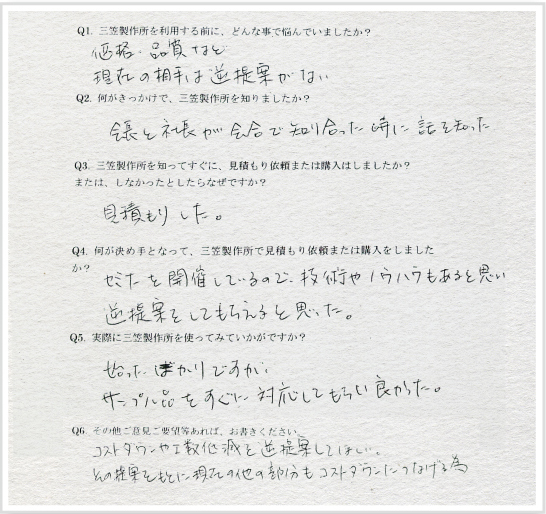 Q1. 三笠製作所を利用する前に、どんな事で悩んでいましたか？
価格・品質など
現在の相手は逆提案がない
Q2. 何がきっかけで、三笠製作所を知りましたか？
会長と社長が会合で知り合った時に話を知った
Q3. 三笠製作所を知ってすぐに、見積もり依頼または購入はしましたか？
または、しなかったとしたらなぜですか？
見積もりした。
Q4. 何が決め手となって、三笠製作所で見積もり依頼または購入をしました
か？
セミナーを開催しているので、技術やノウハウもあると思い
逆提案をしてもらえると思った。
Q5. 実際に三笠製作所を使ってみていかがですか？
始ったばかりですが、
サンプル品をすぐに対応してもらい良かった。
Q6. その他ご意見ご要望等あれば、お書きください
コストダウンや工数低減を逆提案してほしい。
その提案をもとに現在の他の部分もコストダウンにつなげる為